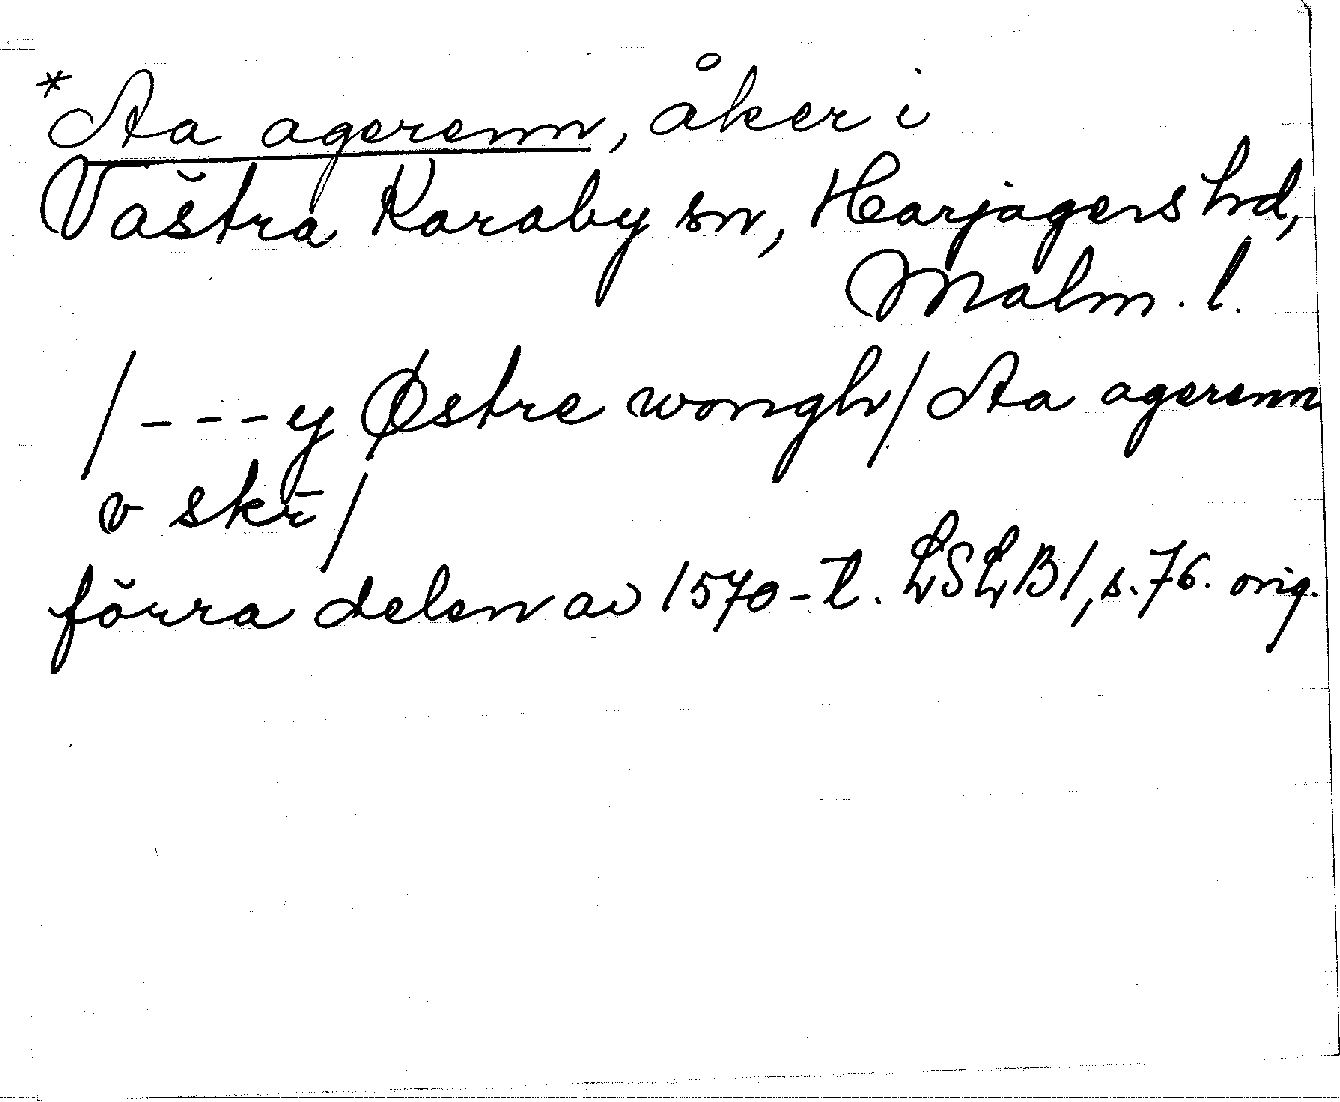 *Aa agerenn, åker i
Västra Karaby sn, Harjagers hd,
Malm. l.
/---y Østre wongh/ Aa agerenn
v skr̄/
förra delen av 1570-t. LSLB1, s.76. orig.